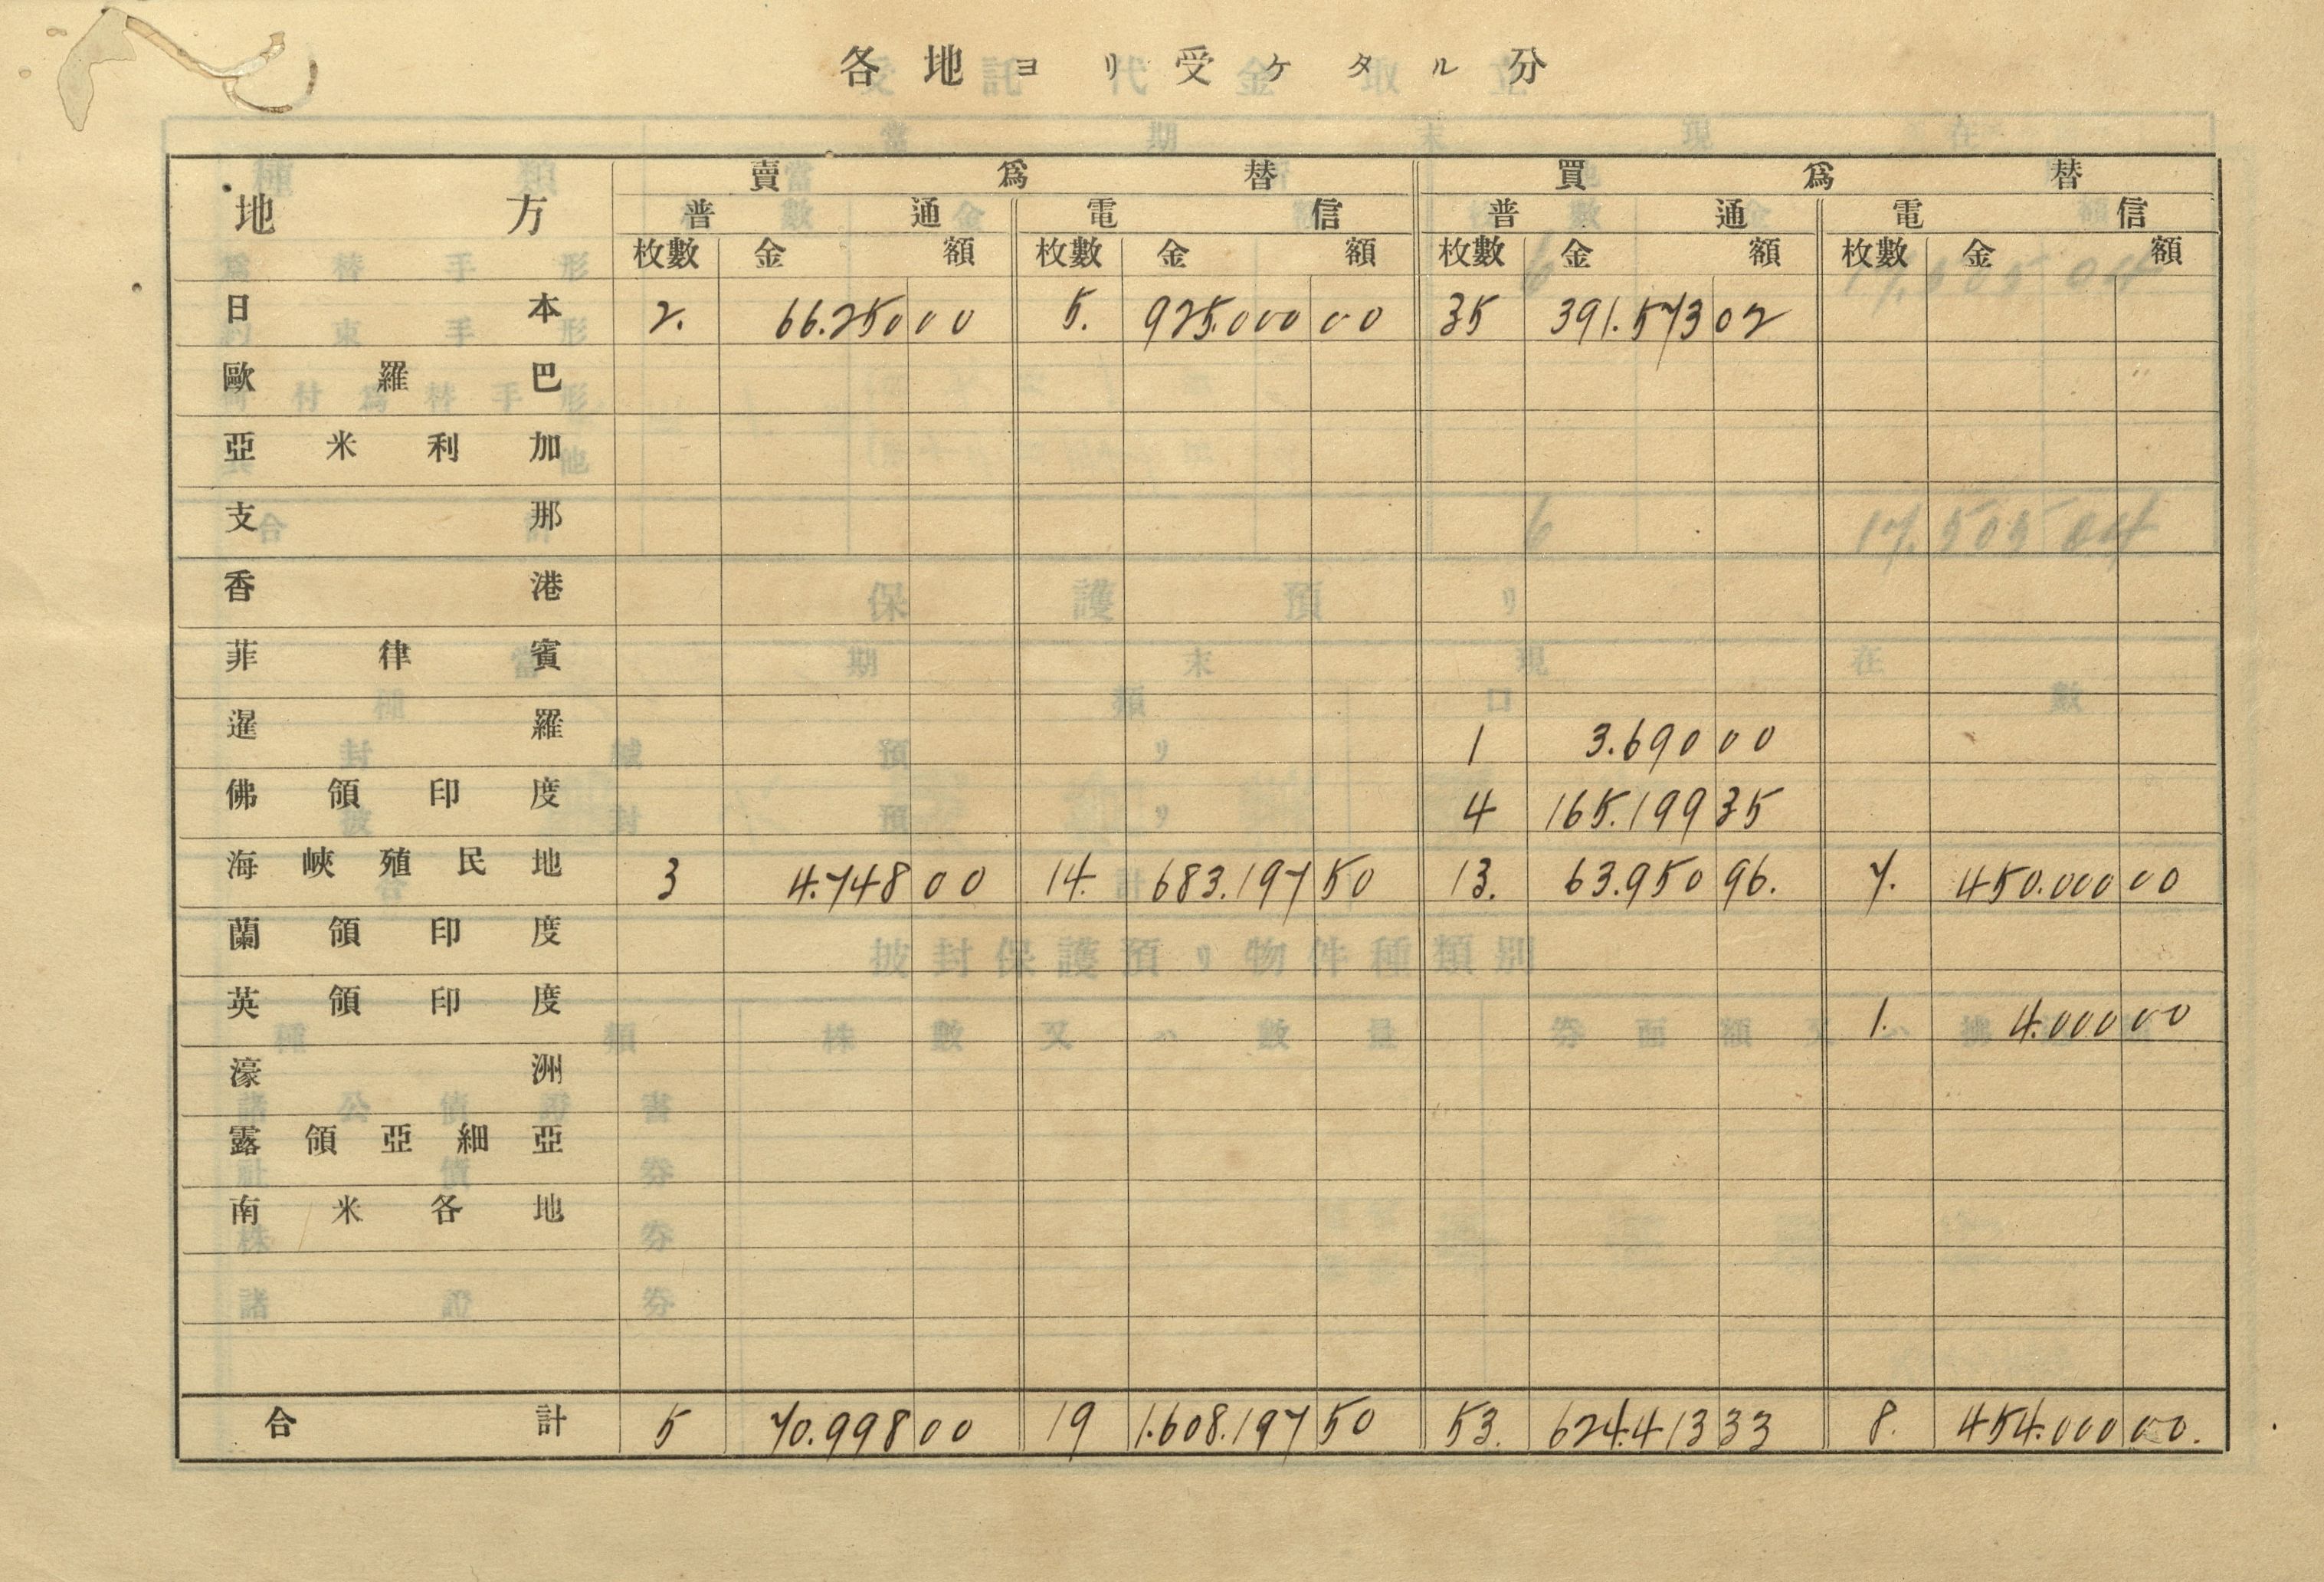 各地ヨリ受ケタル分
地方 賣爲替 買爲替
普通 電信 普通 電信
枚數 金額 枚數 金額 枚數 金額 枚數 金額
日本 2. 66.250 00 5. 925.000 00 35 391.573 02
歐羅巴
亞米利加
支那
香港
菲律賓
暹羅 1 3.690 00
佛領印度 4 165.199 35
海峽殖民地 3 4.748 00 14. 683.197 50 13. 63.950 96. 7. 450.000 00
蘭領印度
英領印度 1. 4.000 00
濠洲
露領亞細亞
南米各地
合計 5 70.998 00 19 1.608.197 50 53. 624.413 33 8. 454.000 00.